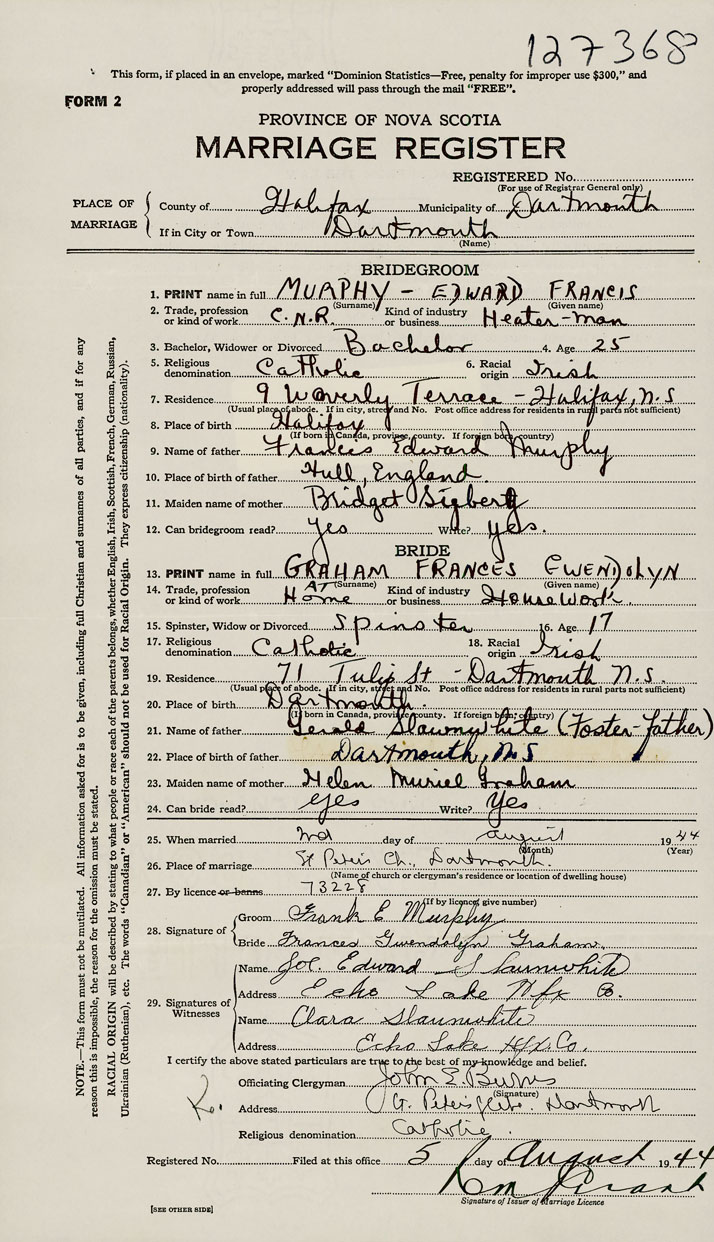 127368
This form, if placed in an envelope, marked "Dominion Statistics—Free, penalty for improper use $300," and
properly addressed will pass through the mail "FREE".
FORM 2
PROVINCE OF NOVA SCOTIA
MARRIAGE REGISTER
REGISTERED No.
(For use of Registrar General only)
PLACE OF MARRIAGE
County of Halifax Municipality of Dartmouth
If in City or Town Dartmouth
(Name)
BRIDEGROOM
1. PRINT name in full MURPHY - EDWARD FRANCIS
(Surname) (Given name)
2. Trade, profession or kind of work C.N.R. Kind of industry or business Heater-man
3. Bachelor, Widower or Divorced Bachelor 4. Age 25
5. Religious denomination Catholic 6. Racial origin Irish
7. Residence 9 Waverly Terrace - Halifax, N.S
(Usual place of abode. If in city, street and No. Post office address for residents in rural parts not sufficient)
8. Place of birth Halifax
(If born in Canada, province, county. If foreign born, country)
9. Name of father Francis Edward Murphy
10. Place of birth of father Hull, England.
11. Maiden name of mother Bridget
12. Can bridegroom read? yes Write? yes.
BRIDE
13. PRINT name in full GRAHAM FRANCES GWENDOLYN
(Surname) (Given name)
14. Trade, profession or kind of work AT Home Kind of industry or business Housework.
15. Spinster, Widow or Divorced Spinster 16. Age 17
17. Religious denomination Catholic 18. Racial origin Irish
19. Residence 71 Tulip St - Dartmouth N.S.
(Usual place of abode. If in city, street and No. Post office address for residents in rural parts not sufficient)
20. Place of birth Dartmouth.
(If born in Canada, province, county. If foreign born, country)
21. Name of father Gerald Slawnywhite (Foster-father)
22. Place of birth of father Dartmouth, N.S
23. Maiden name of mother Helen Muriel Graham
24. Can bride read? yes Write? Yes
25. When married 2nd day of august 1944
(Month) (Year)
26. Place of marriage St Peter's Ch., Dartmouth.
(Name of church or clergyman's residence or location of dwelling house)
27. By licence or banns 73228
(If by licence, give number)
28. Signature of
Groom Frank E Murphy
Bride Frances Gwendolyn Graham.
29. Signatures of Witnesses
Name Jos. Edward Slaunwhite
Address Echo Lake Hfx Co.
Name Clara Slaunwhite
Address Echo Lake Hfx. Co.
I certify the above stated particulars are true to the best of my knowledge and belief.
Officiating Clergyman John E. Burns
(Signature)
Address St. Peter's Dartmouth
Religious denomination Catholic.
Registered No. Filed at this office 5 day of August 1944
Signature of Issuer of Marriage Licence
[SEE OTHER SIDE]
NOTE.—This form must not be mutilated. All information asked for is to be given, including full Christian and surnames of all parties, and if for any
reason this is impossible, the reason for the omission must be stated.
RACIAL ORIGIN will be described by stating to what people or race each of the parents belongs, whether English, Irish, Scottish, French, German, Russian,
Ukrainian (Ruthenian), etc. The words "Canadian" or "American" should not be used for Racial Origin. They express citizenship (nationality).